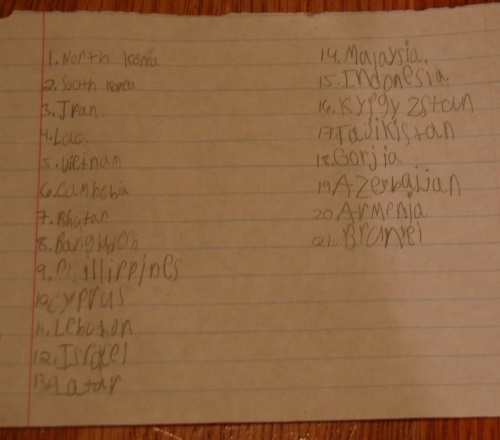 1. North Korea
2. South Korea
3. Iran
4. Laos
5. Vietnam
6. Cambobia
7. Bhutan
8.
9. Phillippines
10. Cyprus
11. Lebanon
12. Israel
13. Qatar
14. Malaysia.
15. Indonesia
16. Kyrgyzstan
17. Tajikistan
18. Gorjia
19. Azerbaijan
20. Armenia
21. Brunei